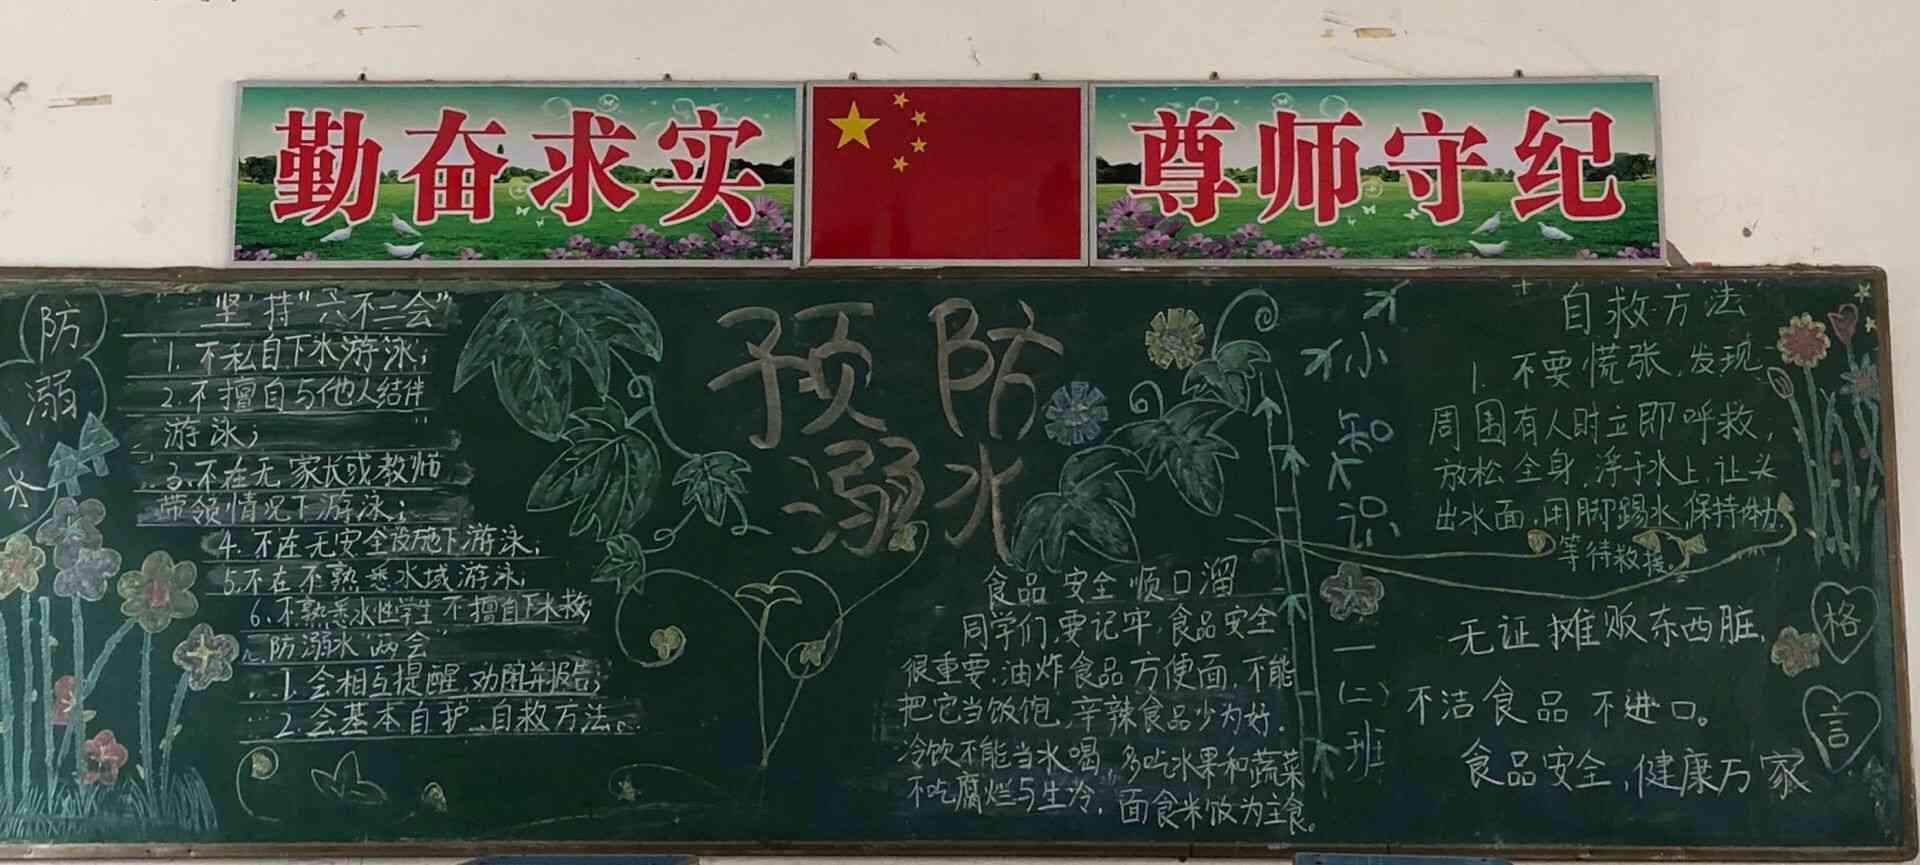 勤奋求实
尊师守纪
防
溺
水
坚持"六不二会"
1.不私自下水游泳;
2.不擅自与他人结伴
游泳;
3.不在无家长或教师
带领情况下游泳;
4.不在无安全设施下游泳;
5.不在不熟悉水域游泳;
6、不熟悉水性学生不擅自下水救;
防溺水"两会"
1.会相互提醒,劝阻并报告;
2.会基本自护、自救方法。
预防
溺水
食品安全顺口溜
同学们,要记牢,食品安全
很重要,油炸食品方便面,不能
把它当饭饱,辛辣食品少为好.
冷饮不能当水喝,多吃水果和蔬菜
不吃腐烂与生冷,面食米饭为主食。
小
知
识
一
(二)
班
自救方法
1.不要慌张,发现
周围有人时立即呼救,
放松全身,浮于水上,让头
出水面,用脚踢水,保持体力,
等待救援。
无证摊贩东西脏,
不洁食品不进口。
食品安全,健康万家
格
言